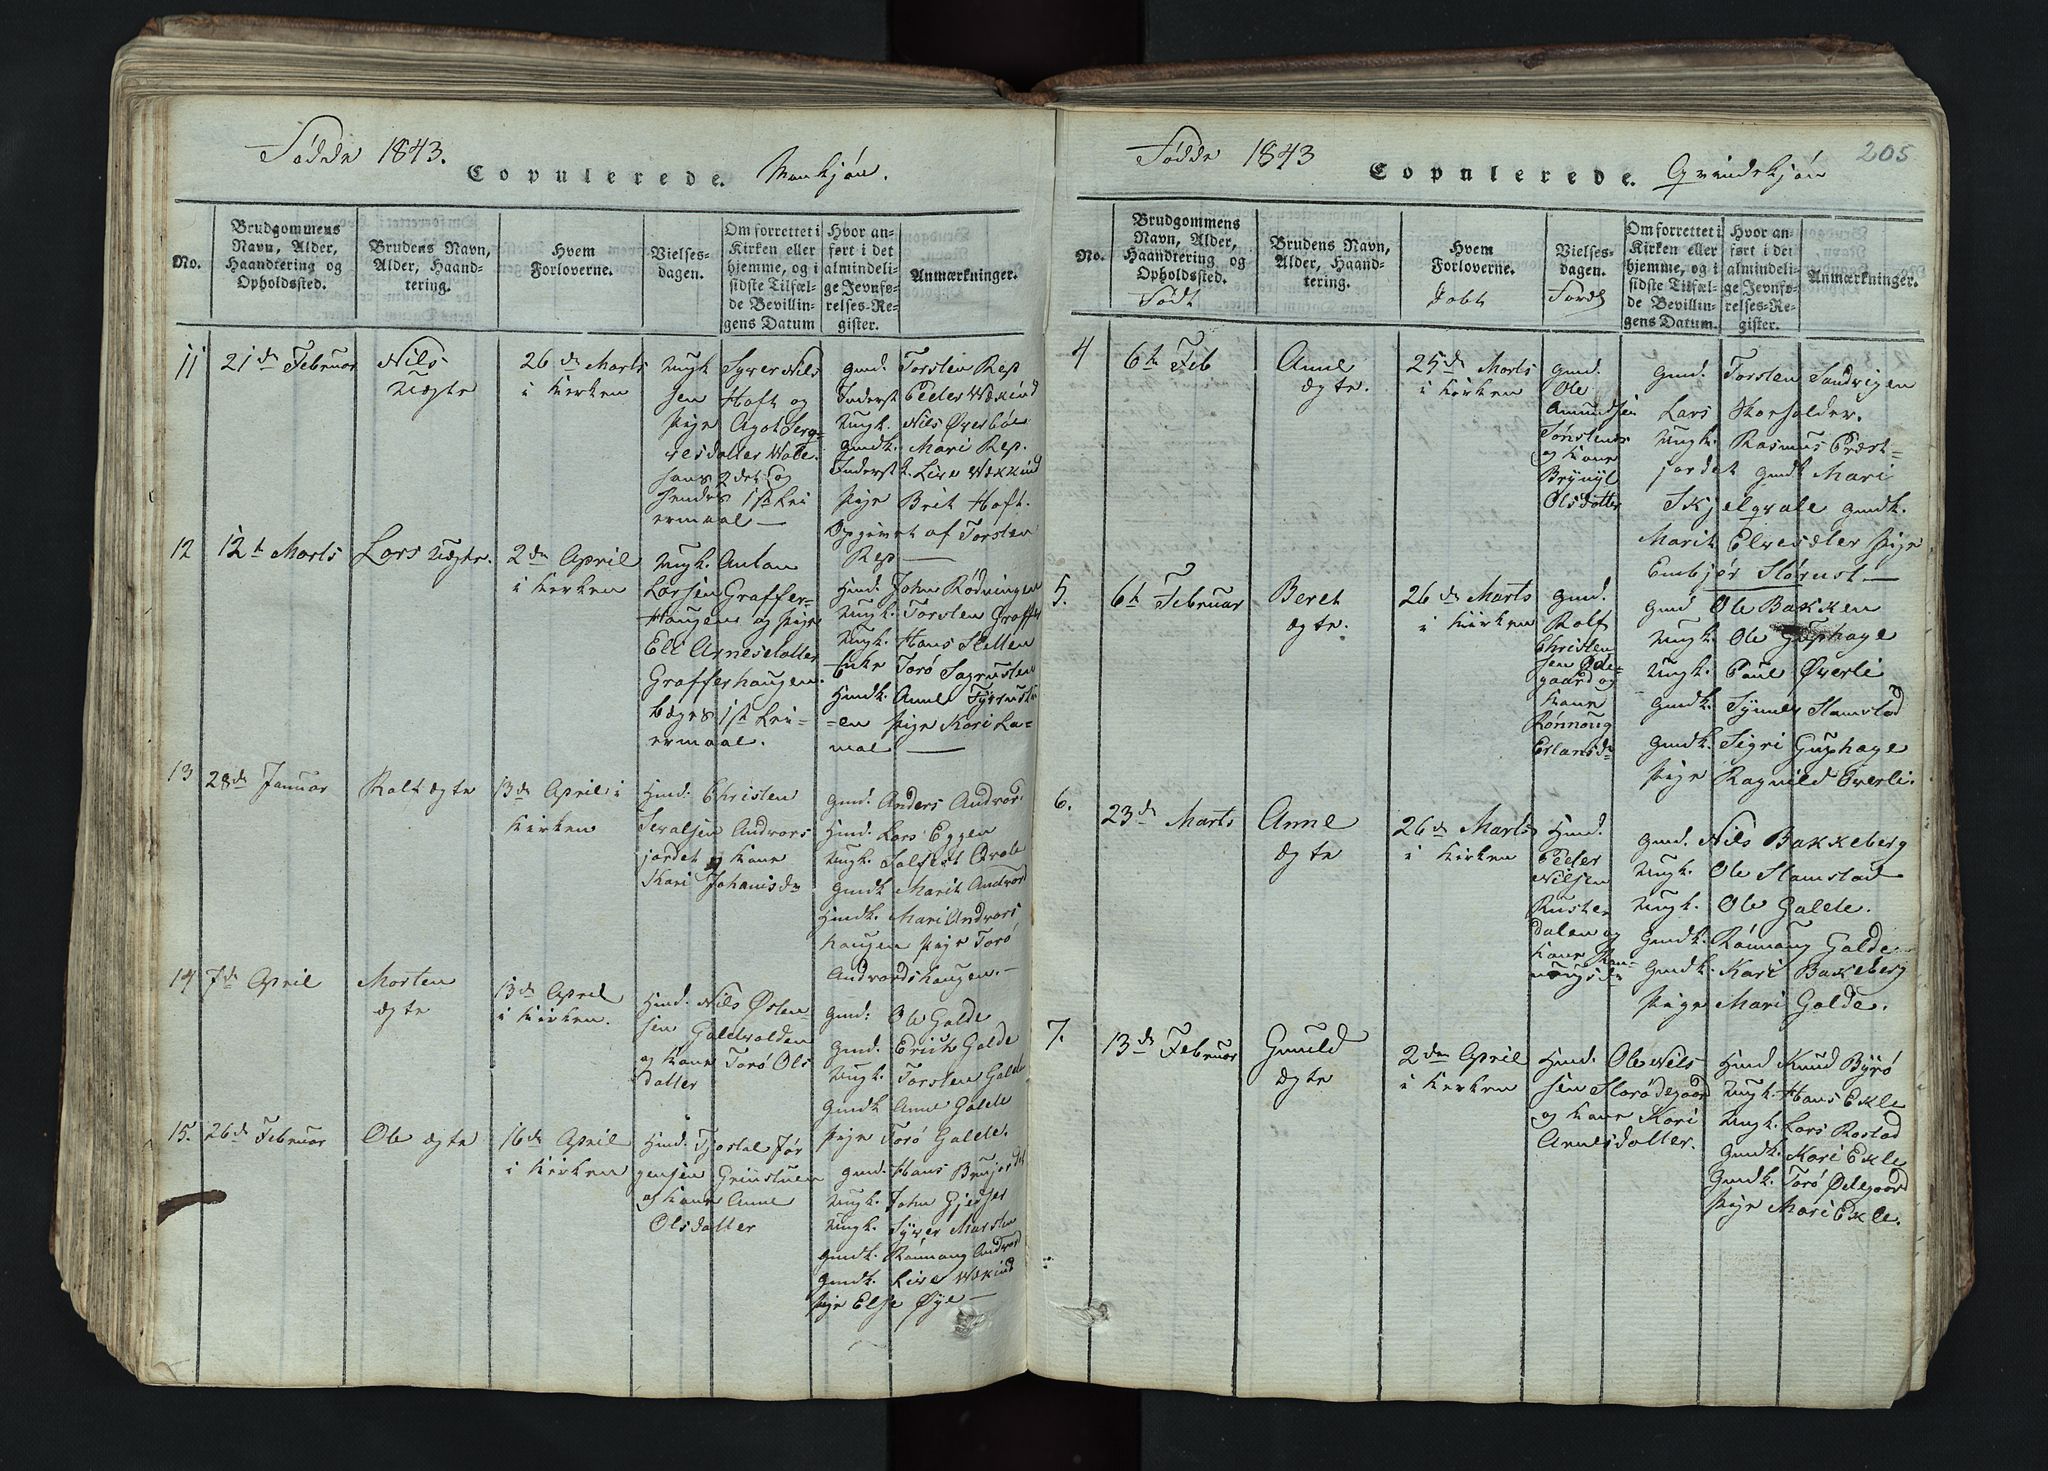 Fødde 1843.
Copulerede. Mankjøn.
No.
Brudgommens Navn, Alder, Haandtering og Opholdssted.
Brudens Navn, Alder, Haandtering.
Hvem Forloverne.
Vielsesdagen.
Om forrettet i Kirken eller hjemme, og i sidste Tilfælde Bevillingens Datum
Hvor anført i det almindelige Jevnførelses-Register.
Anmærkninger.
11
21de Februar
Nils
uægte
26de Marts
i Kirken
Ungk Syver Nils
sen Hoft og
Pige Agot
hans 2det og
hendes 1ste Lei
ermaal —
gmd. Torsten Rep
Inderst Peder Wækind
Ungk. Nils Øverbøe
gmdk. Mari Rep.
Inderstk. Live Wækkind
Pige Brit Hoft.
Opgivet af Torsten
Rep —
12
12te Marts
Lars uægte.
2den April
i Kirken
Ungk. Anton
Larsen Graffer-
Haugen og Pige
Eli Arnesdatter
Grafferhaugen.
begges 1ste Lei-
ermaal.
Hmd. John Rødningen
Ungk. Torsten Graffer
Ungk. Hans Sletten
Enke Torø Sagrusten
Hmdk. Anne
-en Pige Kari La-
mal. —
13
28de Januar
Rolf ægte
13de April i
Kirken
Hmd. Christen
Andvors
jordet og Kone
Kari Johanisdr
gmd. Anders Andvor
Hmd. Lars Eggen
Ungk.
gmdk Marit Andvord
Hmdk. Mari Andvors
haugen Pige Torø
Andvordshaugen. —
14
7de April
Morten
ægte
13de April
i Kirken.
Hmd. Nils Østen-
sen Galdevolden
og Kone Torø Ols
datter
gmd: Ole Galde
gmd. Erich Galde
Ungk. Torsten Galde
gmdk Anne Galde
Pige Torø Galde.
15.
26de Februar
Ole ægte
16de April
i Kirken
Hmd. Tjostel Jør
gensen Grinstuen
og Kone Anne
Olsdatter
gmd. Hans Brujordet
Ungk. John Gjeises
Ungk. Syver Marsten
gmdk. Rønnaug Andvord
gmdk. Live Wækind
Pige Else Øye —
Fødde 1843
Copulerede. Qvindekjøn
205
No.
Brudgommens Navn, Alder, Haandtering og Opholdssted.
Født
Brudens Navn, Alder, Haandtering.
Hvem Forloverne.
Døbt
Vielsesdagen.
Om forrettet i Kirken eller hjemme, og i sidste Tilfælde Bevillingens Datum.
Hvor anført i det almindelige Jevnførelses-Register.
Anmærkninger.
4
6te Feb
Anne
ægte.
25de Marts
i Kirken
gmd.
Ole
Amundsen
og Kone
Olsdatter
gmd. Torsten Sandvigen
Lars
Ungk. Rasmus Præst-
jordet gmdk Mari
Skjelqvale gmdk.
Marit Elvesæter Pige
Embjør Størust —
5.
6te Februar
Beret
ægte.
26de Marts
i Kirken
gmd.
Rolf
Christen
sen Øde-
gaard og
Kone
Rønnoug
Erlandsdr
gmd Ole Bakken
Ungk. Ole Guphage
Ungk. Paul Øverli
gmdk. Synnev Slamstad
gmdk. Sigri Guphage
Pige Ragnild Øverli.
6.
23de Marts
Anne
ægte
26de Marts
i Kirken
Hmd.
Peder
Nilsen
Ruster
dalen og
Kone
gmd. Nils Bakkeberg
Ungk. Ole Slamstad
Ungk. Ole Galde.
gmdk. Rønnaug Galde
gmdk. Kari Bakkeberg
Pige Mari Galde.
7.
13de Februar
Gunild
ægte
2den April
i Kirken
Hmd. Ole Nils
sen Storødegaard
og Kone Kari
Arnesdatter.
Hmd Knud Byrø
Ungk. Hans Ekle
Ungk. Lars Rostad
gmdk. Kari Ekle
gmdk. Torø Ødegaard
Pige Mari Ekle.